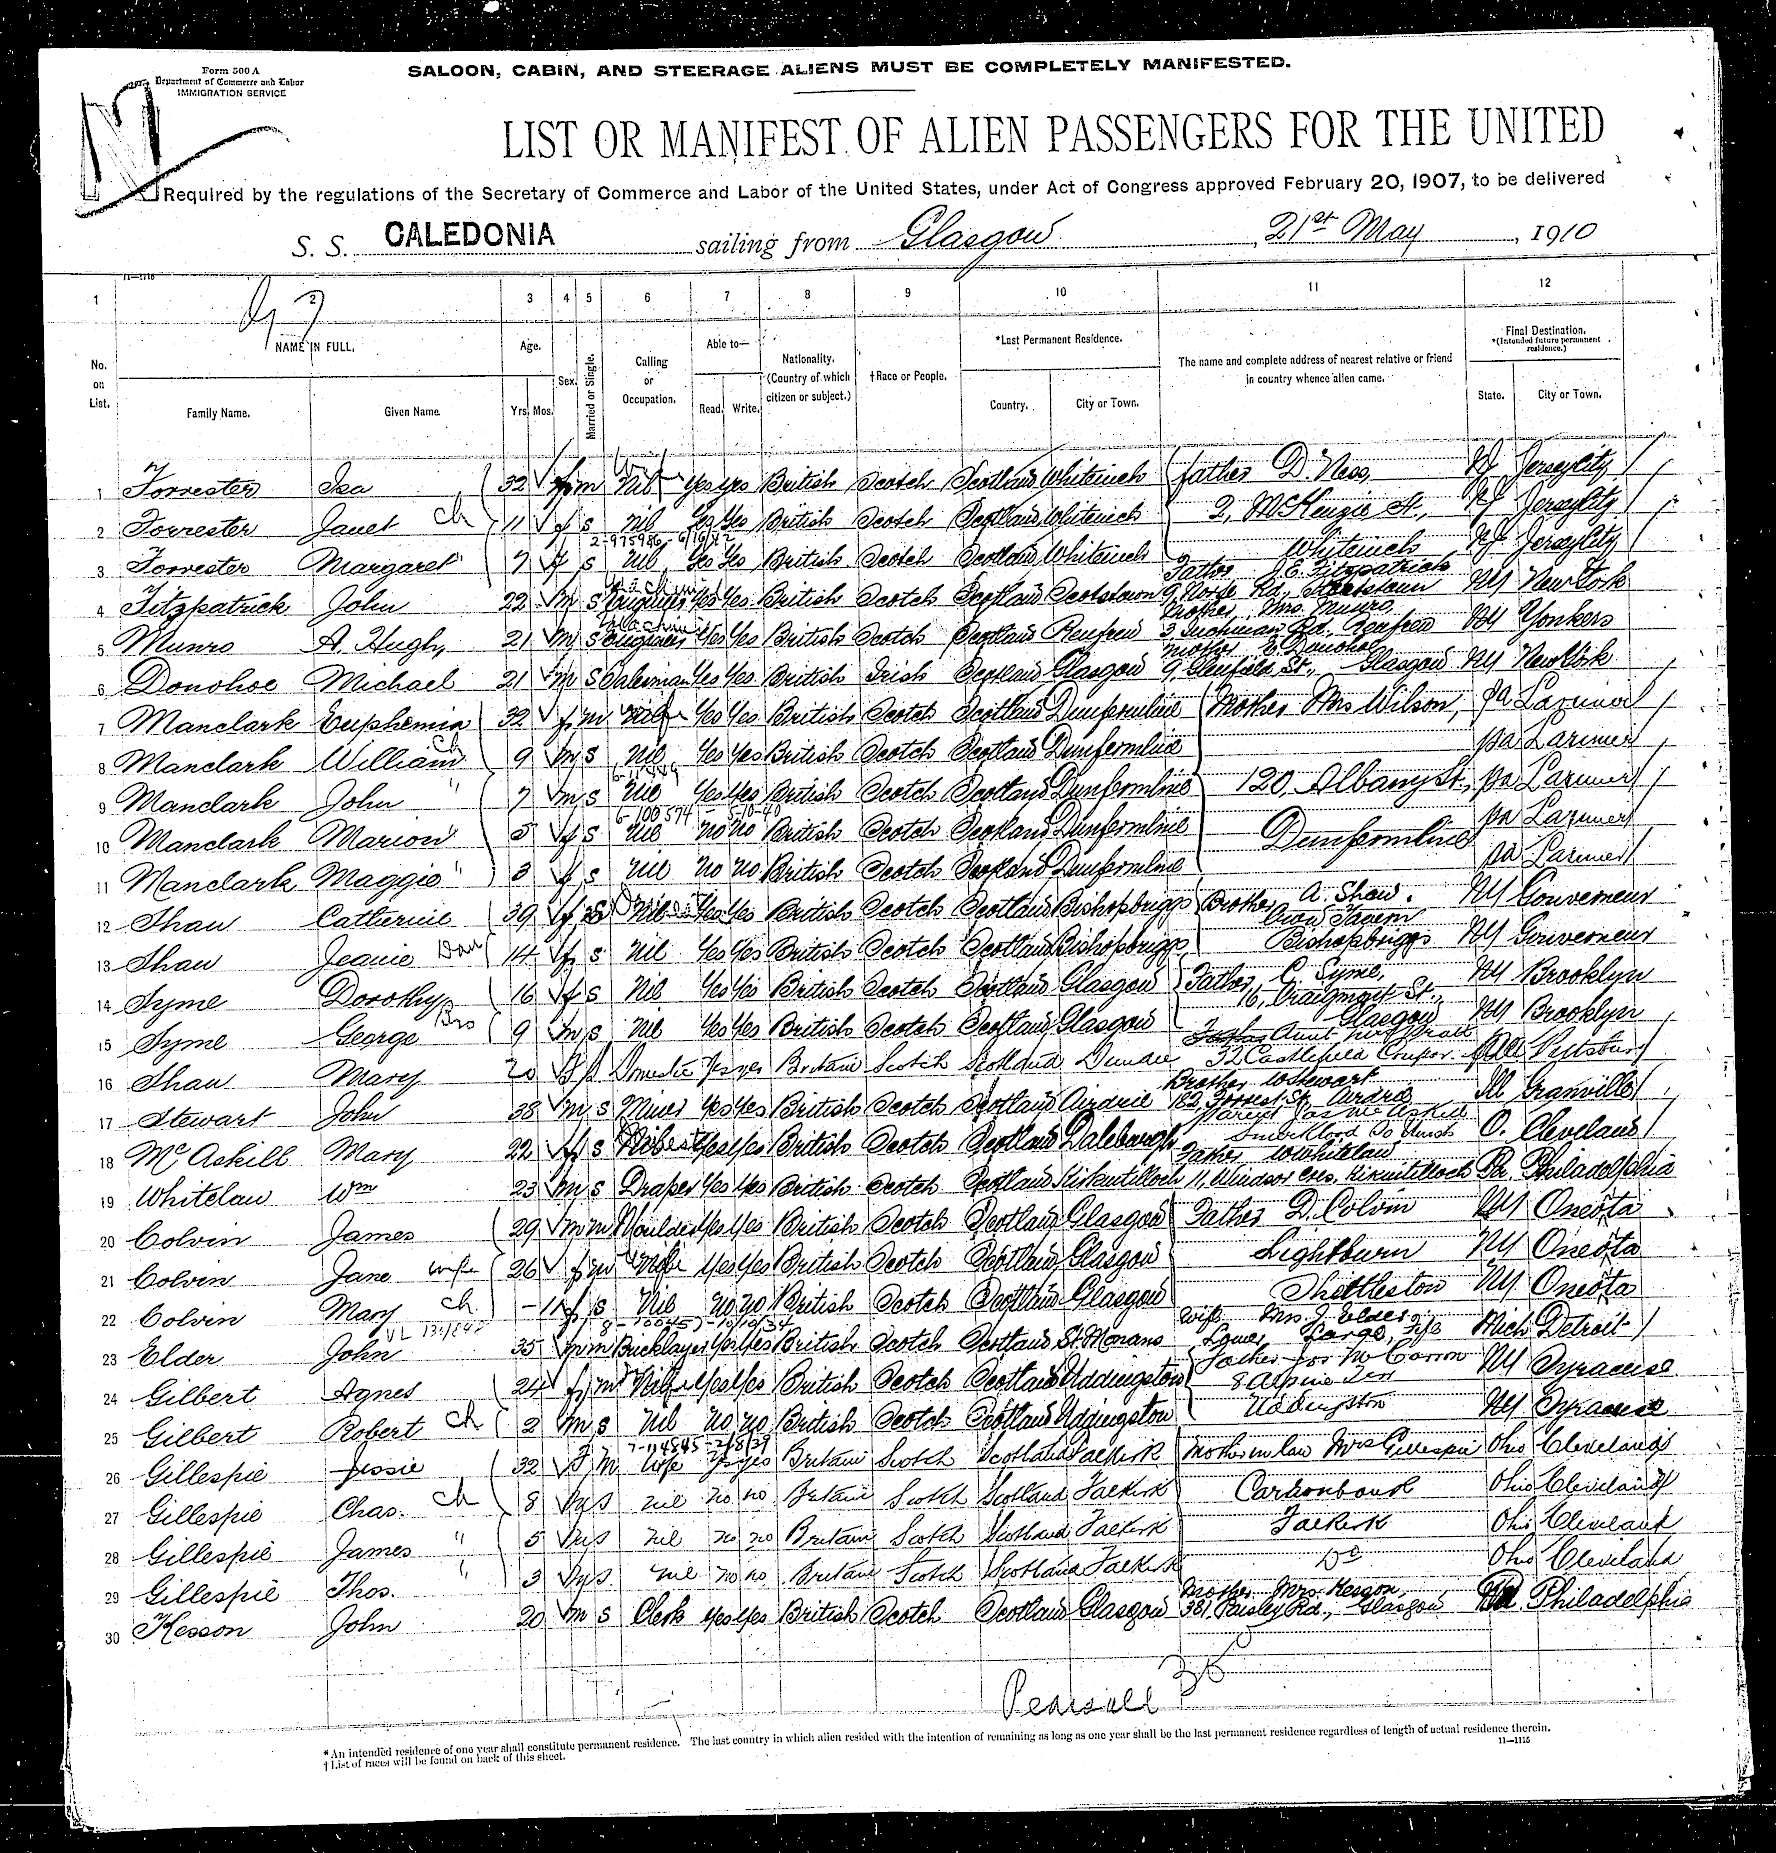 Form 500 A
Department of Commerce and Labor
IMMIGRATION SERVICE
SALOON, CABIN, AND STEERAGE ALIENS MUST BE COMPLETELY MANIFESTED.
LIST OR MANIFEST OF ALIEN PASSENGERS FOR THE UNITED
Required by the regulations of the Secretary of Commerce and Labor of the United States, under Act of Congress approved February 20, 1907, to be delivered
S. S. CALEDONIA sailing from Glasgow, 21st May, 1910
1 2 3 4 5 6 7 8 9 10 11 12
No. on List. NAME IN FULL. Family Name. Given Name. Age. Yrs. Mos. Sex. Married or Single. Calling or Occupation. Able to— Read. Write. Nationality. (Country of which citizen or subject.) †Race or People. *Last Permanent Residence. Country. City or Town. The name and complete address of nearest relative or friend in country whence alien came. Final Destination. *(Intended future permanent residence.) State. City or Town.
1 Forrester Isa 32 f m Nil Yes yes British Scotch Scotland Whiteinch father D. Ness, NJ Jersey City
2 Forrester Janet ch 11 f s nil Yes Yes British Scotch Scotland Whiteinch 2, McKenzie St., NJ Jersey City
3 Forrester Margaret " 7 f s Nil Yes Yes British Scotch Scotland Whiteinch Whiteinch NJ Jersey City
4 Fitzpatrick John 22 m s Yes Yes British Scotch Scotland Scotstoun Father J. E. Fitzpatrick 9, Rd, Scotstoun NY New York
5 Munro A. Hugh 21 m s Engineer Yes Yes British Scotch Scotland Renfrew Mother, Mrs. Munro 3, Rd., Renfrew NY Yonkers
6 Donohoe Michael 21 m s Salesman Yes Yes British Irish Scotland Glasgow mother E. Donohoe 9, St., Glasgow NY New York
7 Manclark Euphemia 32 f m Yes Yes British Scotch Scotland Dunfermline Mother Mrs Wilson, Pa Larimer
8 Manclark William ch 9 m s Nil Yes Yes British Scotch Scotland Dunfermline Pa Larimer
9 Manclark John " 7 m s Nil Yes Yes British Scotch Scotland Dunfermline 120, Albany St., Pa Larimer
10 Manclark Marion 5 f s Nil no no British Scotch Scotland Dunfermline Dunfermline Pa Larimer
11 Manclark Maggie " 3 f s Nil no no British Scotch Scotland Dunfermline Pa Larimer
12 Shaw Catherine 39 f s Yes Yes British Scotch Scotland Bishopbriggs Brother A. Shaw. Tavern NY Gouverneur
13 Shaw Jeanie Dau 14 f s Nil Yes Yes British Scotch Scotland Bishopbriggs Bishopbriggs NY Gouverneur
14 Syme Dorothy 16 f s Nil Yes Yes British Scotch Scotland Glasgow Father, C. Syme, 16, Craigmont St., NY Brooklyn
15 Syme George Bro 9 m s Nil Yes Yes British Scotch Scotland Glasgow Glasgow NY Brooklyn
16 Shaw Mary 20 f s Domestic Yes yes Britain Scotch Scotland Dundee Aunt 32 Castlefield Cupar Pittsburg
17 Stewart John 38 m s Miner Yes Yes British Scotch Scotland Airdrie Brother W Stewart 182, Forrest St, Airdrie Ill Granville
18 McAskill Mary 22 f s Yes Yes British Scotch Scotland O. Cleveland
19 Whitelaw Wm 23 m s Draper Yes Yes British Scotch Scotland Kirkintilloch Father W Whitelaw 11, Windsor Cres. Kirkintilloch Pa. Philadelphia
20 Colvin James 29 m m Moulder Yes Yes British Scotch Scotland Glasgow Father D. Colvin NY Oneota
21 Colvin Jane wife 26 f m Yes Yes British Scotch Scotland Glasgow Lightburn NY Oneota
22 Colvin Mary ch - 11 f s Nil no no British Scotch Scotland Glasgow Shettleston NY. Oneota
23 Elder John 35 m m Bricklayer Yes Yes British Scotch Scotland St. Monans wife Mrs J. Elder, Lower Largo, Fife Mich Detroit
24 Gilbert Agnes 24 f m Nil Yes Yes British Scotch Scotland Uddingston Father Jos McCarron 8 Alpine Terr NY Syracuse
25 Gilbert Robert ch 2 m s Nil no no British Scotch Scotland Uddingston Uddingston NY Syracuse
7-114545-2/8/39
26 Gillespie Jessie 32 f m wife yes yes Britain Scotch Scotland Falkirk Mother in law Mrs Gillespie Ohio Cleveland
27 Gillespie Chas. ch 8 s nil no no Britain Scotch Scotland Falkirk Ohio Cleveland
28 Gillespie James " 5 s nil no no Britain Scotch Scotland Falkirk Falkirk Ohio Cleveland
29 Gillespie Thos. " 3 s nil no no Britain Scotch Scotland Falkirk Do Ohio Cleveland
30 Kesson John 20 m s Clerk Yes Yes British Scotch Scotland Glasgow Mother, Mrs. Kesson, 381, Paisley Rd., Glasgow Philadelphia
Pearsall
*An intended residence of one year shall constitute permanent residence. The last country in which alien resided with the intention of remaining as long as one year shall be the last permanent residence regardless of length of actual residence therein.
†List of races will be found on back of this sheet.
11—1115